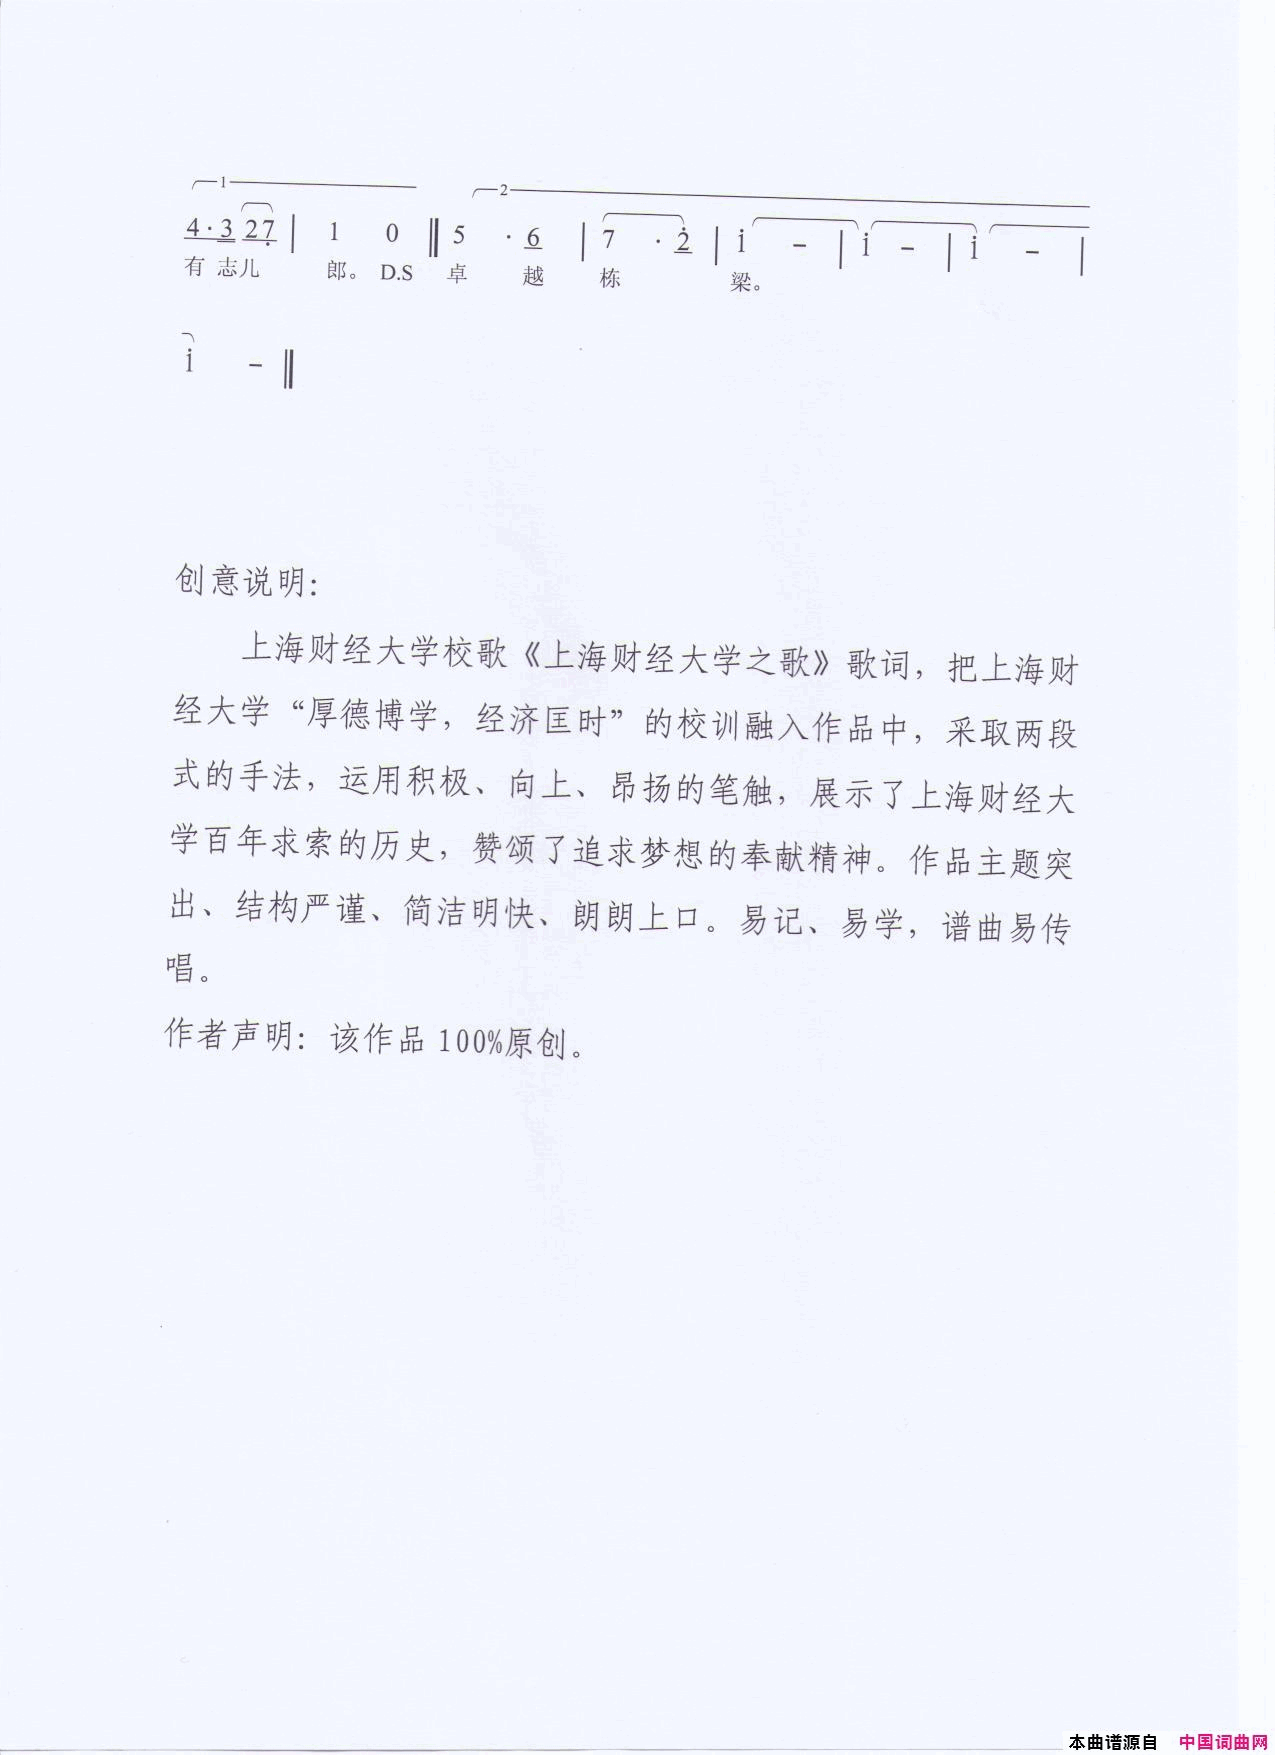 1 2
4·3 27 | 1 0 ‖ 5 · 6 | 7 · 2̇ | i – | i – | i – |
有 志儿 郎。 D.S 卓 越 栋 梁。
i – ‖
创意说明：
上海财经大学校歌《上海财经大学之歌》歌词，把上海财
经大学“厚德博学，经济匡时”的校训融入作品中，采取两段
式的手法，运用积极、向上、昂扬的笔触，展示了上海财经大
学百年求索的历史，赞颂了追求梦想的奉献精神。作品主题突
出、结构严谨、简洁明快、朗朗上口。易记、易学，谱曲易传
唱。
作者声明：该作品 100%原创。
本曲谱源自 中国词曲网